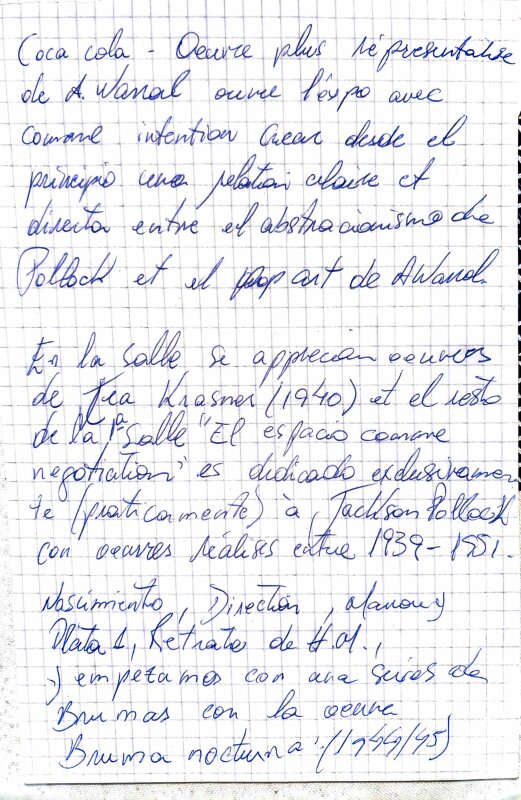 Coca cola - Oeuvre plus réprésentative
de A. Warol ouvre l'éxpo avec
comme intention crear desde el
principio una relation claire et
directa entre el abstracionismo de
Pollock et el pop art de A Warol.
En la Salle se apprecian oeuvres
de Lea Krasner (1940) et el resto
de la 1ª Salle "El espacio comme
negotiation" es didicado exclusivamen
te (praticamente) à, Jackson Pollock
con oeuvres réalisés entre 1939-1951.
Nascimiento, Direction,
Plata 1, Retrato de H.M.,
empezamos con una series de
Brumas con la oeuvre
Bruma nocturna" (1944/45)